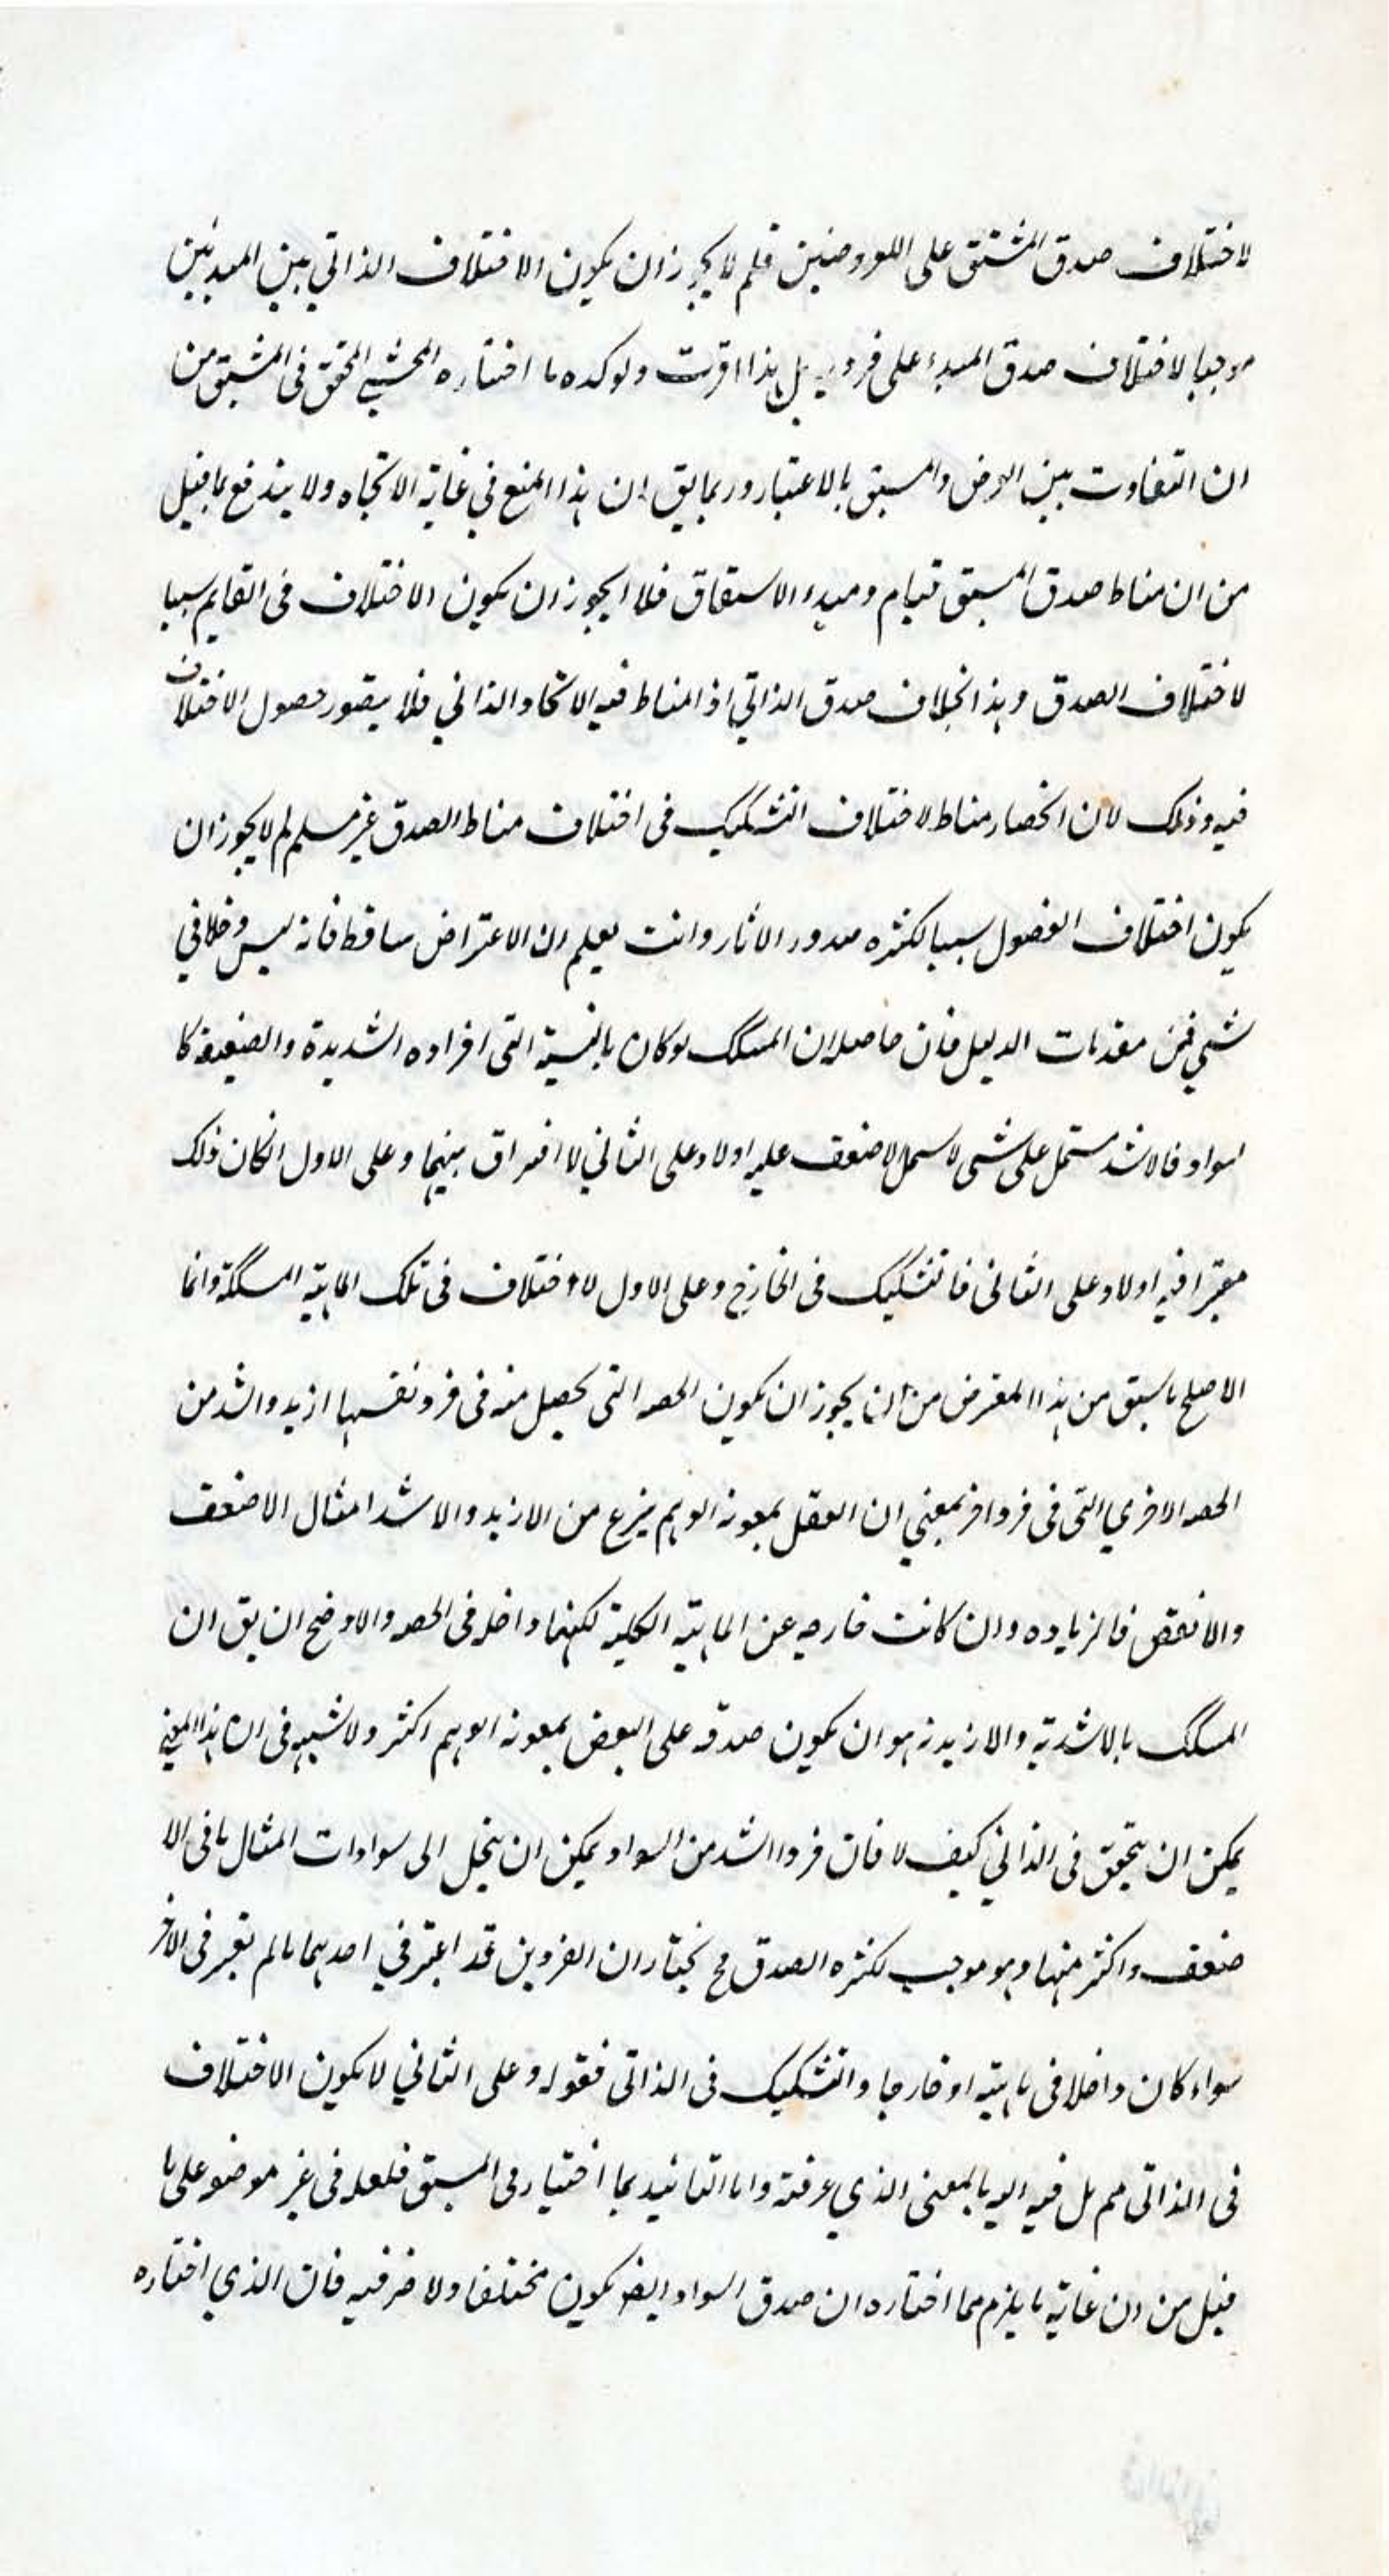 لاختلاف صدق المشتق على المعروضين فلم لا يجوز ان يكون الاختلاف الذاتي بين المبدئين
موجبا لاختلاف صدق المبدء على فرديه بل هذا اقرب ويوكده ما اختاره المحشي المحقق فى المشتق من
ان التفاوت بين العرض والمشتق بالاعتبار وربما يق ان هذا المنع في غاية الاتجاه ولا يندفع بما قيل
من ان مناط صدق المشتق قيام ومبدء الاشتقاق فلا يجوز ان يكون الاختلاف فى القايم سببا
لاختلاف الصدق وهذا بخلاف صدق الذاتي اذ المناط فيه الاتحاد الذاتي فلا يتصور حصول الاختلاف
فيه وذلك لان انحصار مناط لاختلاف التشكيك فى اختلاف مناط الصدق غير مسلم لم لا يجوز ان
يكون اختلاف الفصول سببا لكثره صدور الاثار وانت تعلم ان الاعتراض ساقط فانه ليس دخلا في
شي من مقدمات الدليل فان حاصله ان المشكك لو كان بالنسبة التى افراده الشديدة والضعيفة كا
لسواد فالاشد مشتمل على شى لا يشمل لاضعف عليه اولا وعلى الثاني لا افتراق بينهما وعلى الاول انكان ذلك
معتبرا فيه اولا وعلى الثانى فالتشكيك فى الخارج وعلى الاول لا اختلاف فى تلك الماهية المشككة وانما
الاصلح ما سبق من هذا المعترض من ان يجوز ان يكون الحصه التى تحصل منه فى فرد نفسها ازيد واشد من
الحصه الاخري التى فى فرد اخر بمعني ان العقل بمعونة الوهم ينزع من الازيد والاشد امثال الاضعف
والانقص فالزياده وان كانت خارجه عن الماهية الكلية لكنها داخله فى الحصه والاوضح ان يق ان
المشكك بالاشدية والازيدية هو ان يكون صدقه على البعض بمعونة الوهم اكثر ولا شبهه فى ان هذا المعني
يمكن ان يتحقق فى الذاتي كيف لا فان فردا اشد من السواد يمكن ان ينحل الى سوادات امثال ما فى الا
ضعف واكثر منها وهو موجب لكثره الصدق مح نختار ان الفردين قد اعتبر في احدهما ما لم يعتبر فى الاخر
سواء كان داخلا فى ماهيته او خارجا والتشكيك فى الذاتى فقوله وعلى الثاني لا يكون الاختلاف
فى الذاتى مم بل فيه بالمعنى الذي عرفته واما التائيد بما اختيار فى المشتق فلعله فى غير موضوعه على ما
قيل من ان غاية ما يلزم مما اختاره ان صدق السواد ايضا يكون مختلفا ولا ضر فيه فان الذي اختاره